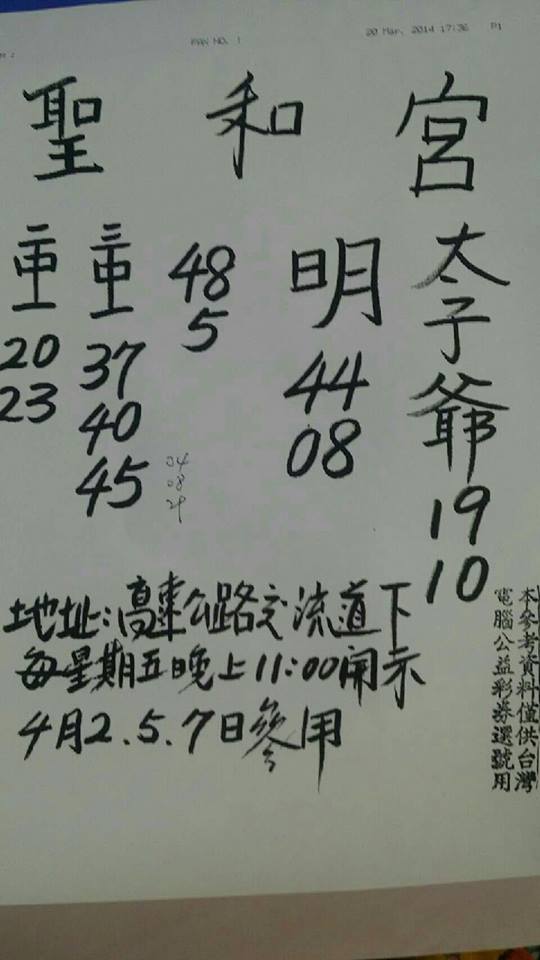 20 Mar. 2014 17:36 P1
聖 和 宮
太子爺
19
10
明
44
08
48
5
三中工
37
40
45
04
08
29
二中工
20
23
地址:高速公路交流道下
每星期五晚上11:00開示
4月2.5.7日參用
本參考資料僅供台灣
電腦公益彩券選號用